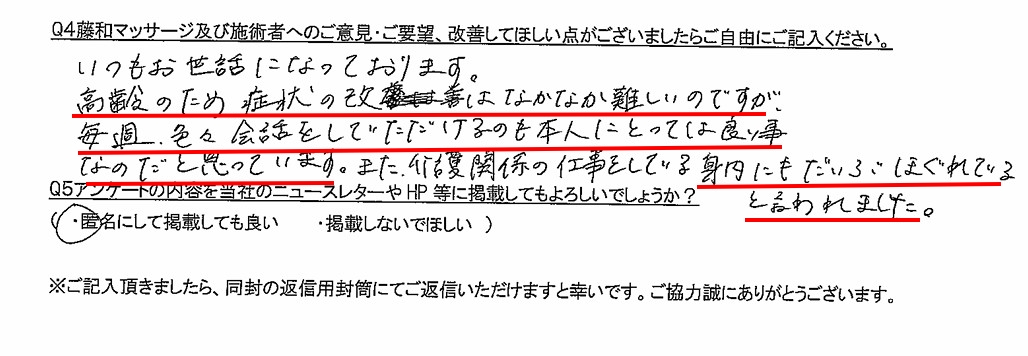 Q4藤和マッサージ及び施術者へのご意見・ご要望、改善してほしい点がございましたらご自由にご記入ください。
いつもお世話になっております。
高齢のため症状の改善はなかなか難しいのですが、
毎週、色々会話をしていただけるのも本人にとっては良い事
なのだと思っています。また、介護関係の仕事をしている身内にもだいぶほぐれている
と言われました。
Q5アンケートの内容を当社のニュースレターやHP等に掲載してもよろしいでしょうか?
(・匿名にして掲載しても良い ・掲載しないでほしい )
※ご記入頂きましたら、同封の返信用封筒にてご返信いただけますと幸いです。ご協力誠にありがとうございます。